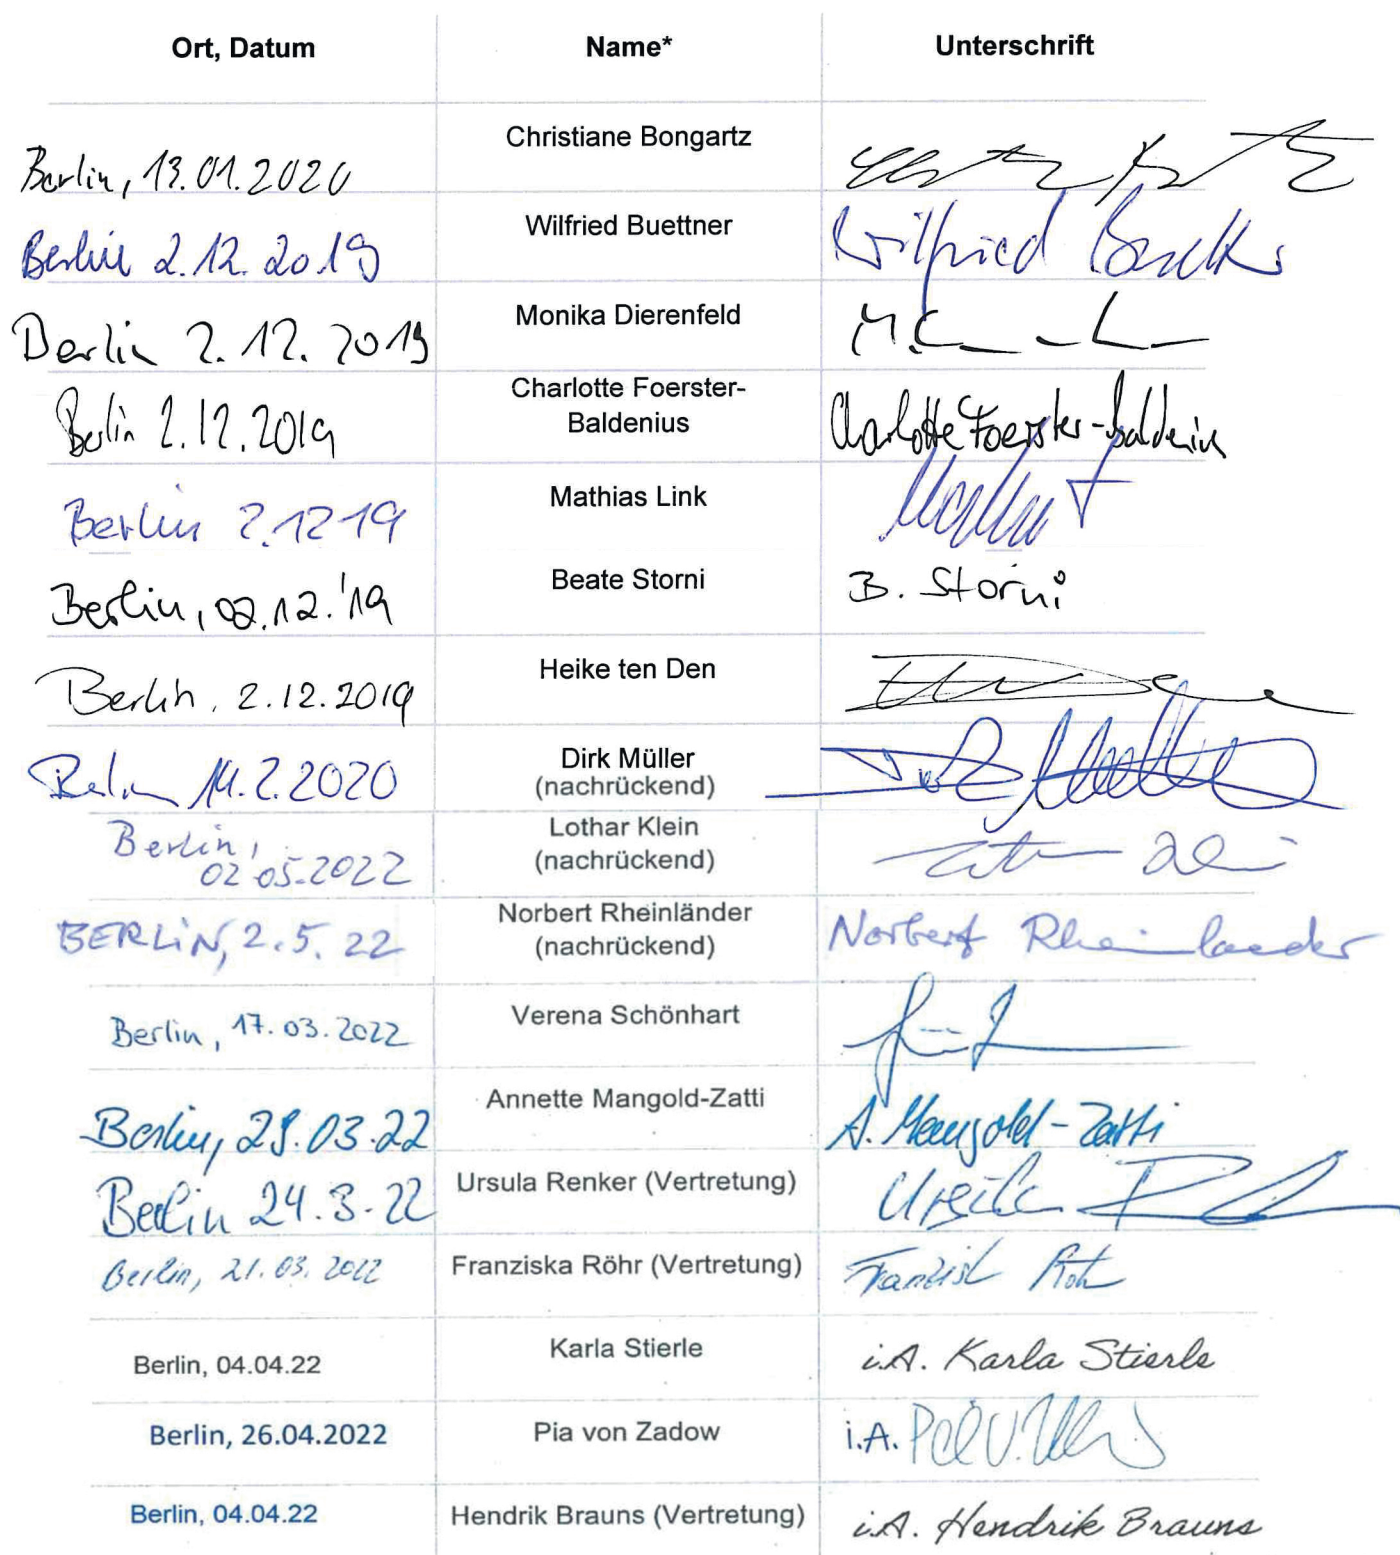 Ort, Datum Name* Unterschrift
Berlin, 13.01.2020 Christiane Bongartz
Berlin 2.12.2019 Wilfried Buettner Wilfried
Berlin 2.12.2019 Monika Dierenfeld
Berlin 2.12.2019 Charlotte Foerster-
Baldenius Charlotte Foerster-Baldenius
Berlin 2.12 19 Mathias Link
Berlin, 02.12.'19 Beate Storni B. Storni
Berlin, 2.12.2019 Heike ten Den
Berlin 14.2.2020 Dirk Müller
(nachrückend)
Berlin, Lothar Klein
02.05.2022 (nachrückend)
BERLiN, 2.5.22 Norbert Rheinländer Norbert Rheinlaender
(nachrückend)
Berlin, 17.03.2022 Verena Schönhart
Berlin, 29.03.22 Annette Mangold-Zatti A. Mangold-Zatti
Berlin 24.3.22 Ursula Renker (Vertretung) Ursula
Berlin, 21.03.2022 Franziska Röhr (Vertretung)
Berlin, 04.04.22 Karla Stierle i.A. Karla Stierle
Berlin, 26.04.2022 Pia von Zadow i.A.
Berlin, 04.04.22 Hendrik Brauns (Vertretung) i.A. Hendrik Brauns